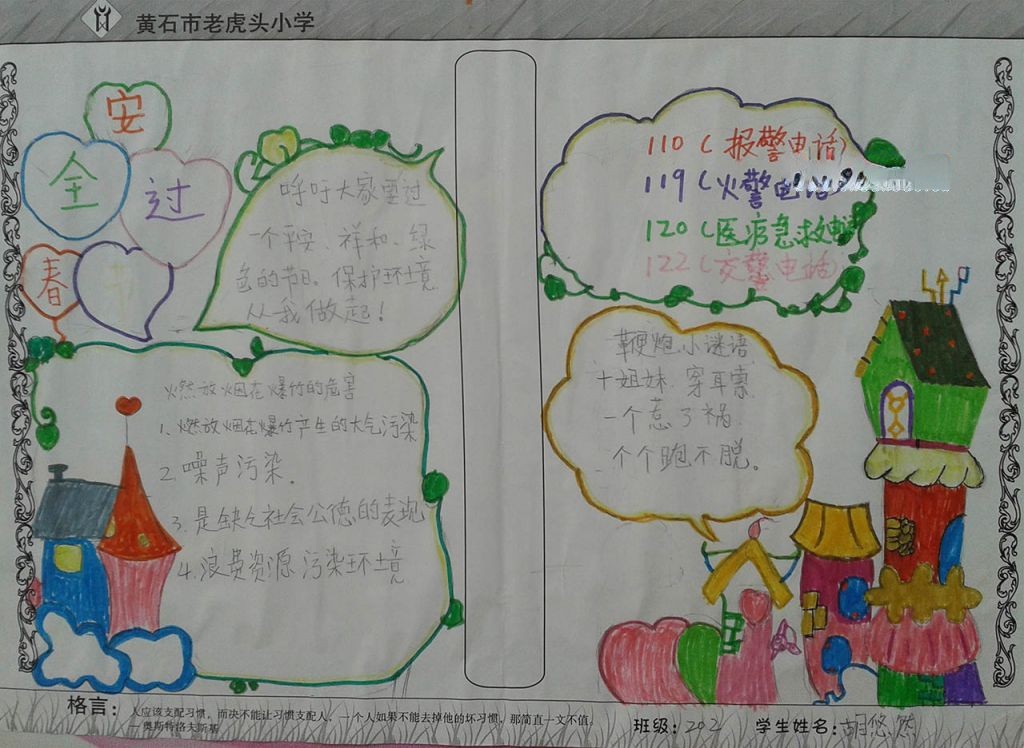 黄石市老虎头小学
安全过春节
呼吁大家重过
一个平安、祥和、绿
色的节日。保护环境
从我做起!
燃放烟花爆竹的危害
1、燃放烟花爆竹产生的大气污染
2、噪声污染.
3、是缺乏社会公德的表现
4、浪费资源 污染环境
110(报警电话)
119(火警电话)
120(医疗急救电话
122(交警电话)
鞭炮小谜语
十姐妹 穿耳索
一个惹了祸
个个跑不脱。
格言:
人应该支配习惯,而决不能让习惯支配人,一个人如果不能去掉他的坏习惯,那简直一文不值。
—奥斯特洛夫斯基
班级:202 学生姓名:胡悠然